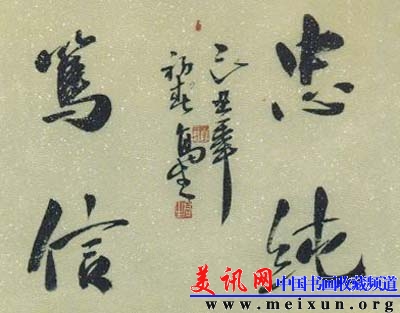 忠純
己丑年
初春
篤信
美讯网
中国书画收藏频道
www.meixun.org